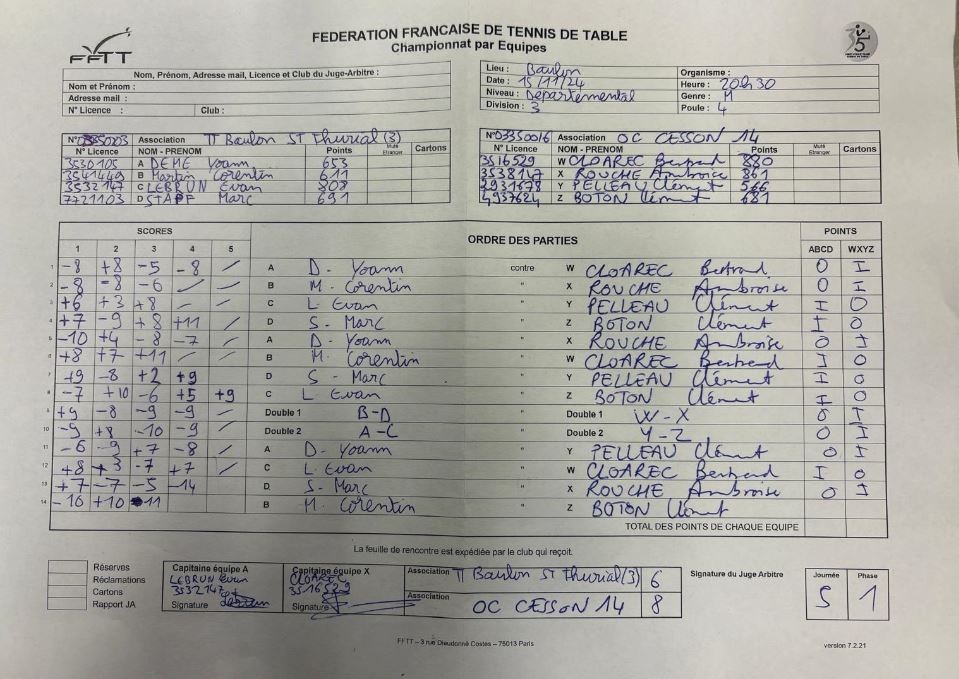 FFTT
FEDERATION FRANCAISE DE TENNIS DE TABLE
Championnat par Equipes
Nom, Prénom, Adresse mail, Licence et Club du Juge-Arbitre :
Nom et Prénom :
Adresse mail :
N° Licence : Club :
Lieu : Baulon Organisme :
Date : 15/11/24 Heure : 20h30
Niveau : Départemental Genre : M
Division : 3 Poule : 4
N° Association TT Baulon ST Thurial (3)
N° Licence NOM - PRENOM Points Muté Etranger Cartons
3530105 A DEME Yoann 653
3541449 B Martin Corentin 611
3532147 C LEBRUN Evan 808
7721103 D STAPF Marc 691
N° 03350016 Association OC CESSON 14
N° Licence NOM - PRENOM Points Muté Etranger Cartons
3516529 W CLOAREC Bertrand 880
3538147 X ROUCHE Ambroise 861
2931678 Y PELLEAU Clément 566
4937624 Z BOTON Clément 681
SCORES ORDRE DES PARTIES POINTS
1 2 3 4 5 ABCD WXYZ
1 -8 +8 -5 -8 / A D. Yoann contre W CLOAREC Bertrand 0 I
2 -8 -8 -6 / / B M. Corentin " X ROUCHE Ambroise 0 I
3 +6 +3 +8 / / C L. Evan " Y PELLEAU Clément I 0
4 +7 -9 +8 +11 / D S. Marc " Z BOTON Clément I 0
5 -10 +4 -8 -7 / A D. Yoann " X ROUCHE Ambroise 0 I
6 +8 +7 +11 / / B M. Corentin " W CLOAREC Bertrand I 0
7 +9 -8 +2 +9 D S. Marc " Y PELLEAU Clément I 0
8 -7 +10 -6 +5 +9 C L Evan " Z BOTON Clément I 0
9 +9 -8 -9 -9 / Double 1 B-D " Double 1 W-X 0 I
10 -9 +8 -10 -9 / Double 2 A-C " Double 2 Y-Z 0 I
11 -6 -9 +7 -8 / A D. Yoann " Y PELLEAU Clément 0 I
12 +8 +3 -7 +7 / C L. Evan " W CLOAREC Bertrand I 0
13 +7 -7 -5 -14 D S. Marc " X ROUCHE Ambroise 0 I
14 -10 +10 -11 B M. Corentin " Z BOTON Clément
TOTAL DES POINTS DE CHAQUE EQUIPE
La feuille de rencontre est expédiée par le club qui reçoit.
Réserves
Réclamations
Cartons
Rapport JA
Capitaine équipe A
LEBRUN Evan
3532147
Signature
Capitaine équipe X
CLOAREC
3516529
Signature
Association TT Baulon ST Thurial (3) 6
Association OC CESSON 14 8
Signature du Juge Arbitre
Journée Phase
5 1
FFTT – 3 rue Dieudonné Costes – 75013 Paris
version 7.2.21